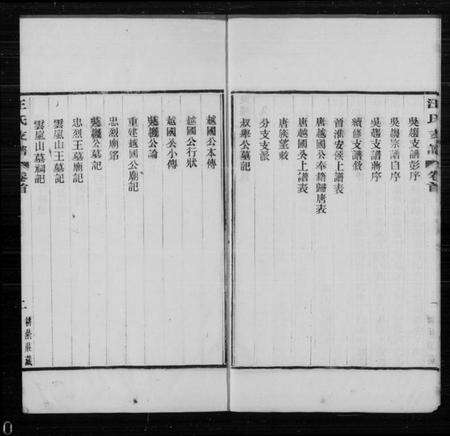 汪氏支譜 卷首
吳趨支譜彭序
吳趨宗譜自序
吳趨支譜蔣序
續修支譜啓
晉淮安侯上譜表
唐越國公奉籍歸唐表
唐越國公上譜表
唐族望敕
分支支派
叔舉公墓記
越國公本傳
越國公行狀
越國公小傳
吳國公論
重建越國公廟記
忠烈廟
吳國公墓記
忠烈王墓廟記
雲嵐山王墓記
雲嵐山墓祠記
汪氏支譜 卷首
二
耕蔭莊藏